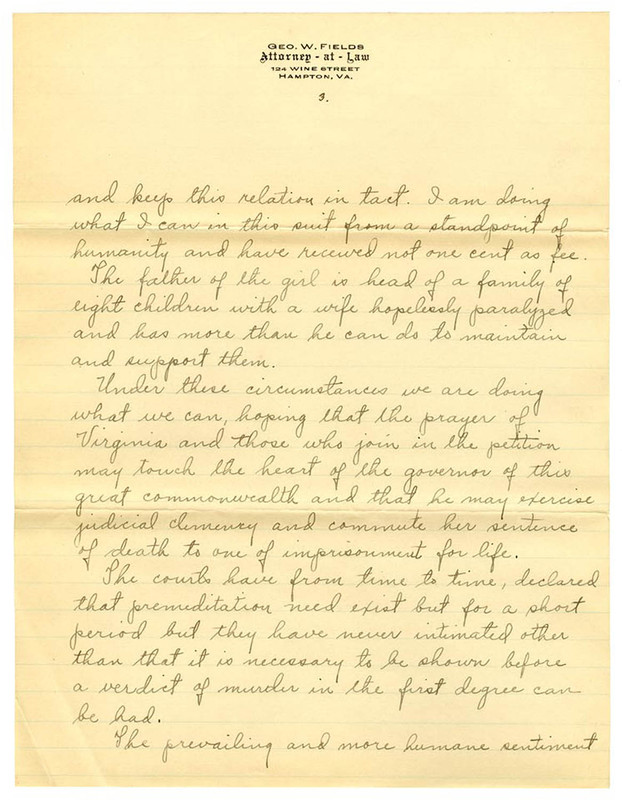 GEO. W. FIELDS
Attorney - at - Law
124 WINE STREET
HAMPTON, VA.
3.
and keeps this relation in tact. I am doing
what I can in this suit from a standpoint of
humanity and have received not one cent as fee.
The father of the girl is head of a family of
eight children with a wife hopelessly paralyzed
and has more than he can do to maintain
and support them.
Under these circumstances we are doing
what we can, hoping that the prayer of
Virginia and those who join in the petition
may touch the heart of the governor of this
great commonwealth and that he may exercise
judicial clemency and commute her sentence
of death to one of imprisonment for life.
The courts have from time to time, declared
that premeditation need exist but for a short
period but they have never intimated other
than that it is necessary to be shown before
a verdict of murder in the first degree can
be had.
The prevailing and more humane sentiment